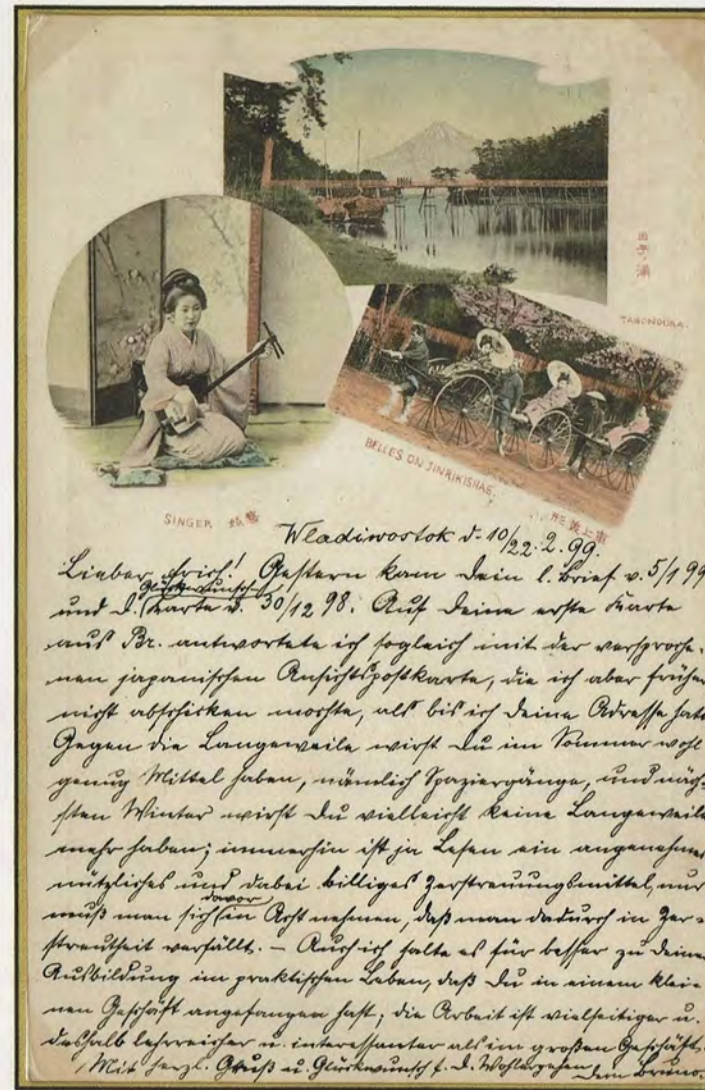 田子ノ浦
TAGONOURA.
BELLES ON JINRIKISHAS.
SINGER
Wladiwostok d. 10/22. 2. 99.
Lieber Erich! Gestern kam Dein l. Brief v. 5/1 99
und d. Glückwunsch Karte v. 30/12 98. Auf Deine erste Karte
aus Br. antwortete ich sogleich mit der versproche-
nen japanischen Ansichtspostkarte, die ich aber früher
nicht abschicken mochte, als bis ich Deine Adresse hatte
Gegen die Langeweile wirst Du im Sommer wohl
genug Mittel haben, nämlich Spaziergänge, und näch-
sten Winter wirst Du vielleicht keine Langeweile
mehr haben; immerhin ist ja Lesen ein angenehmes
nützliches und dabei billiges Zerstreuungsmittel, nur
muß man sich davor in Acht nehmen, daß man dadurch in Zer-
streutheit verfällt. – Auch ich halte es für besser zu Deiner
Ausbildung im praktischen Leben, daß Du in einem klei-
nen Geschäft angefangen hast; die Arbeit ist vielseitiger u.
deshalb lehrreicher u. interessanter als im großen Geschäft.
Mit herzl. Gruß u. Glückwunsch f. d. Wohlergehen Dein Bruno.